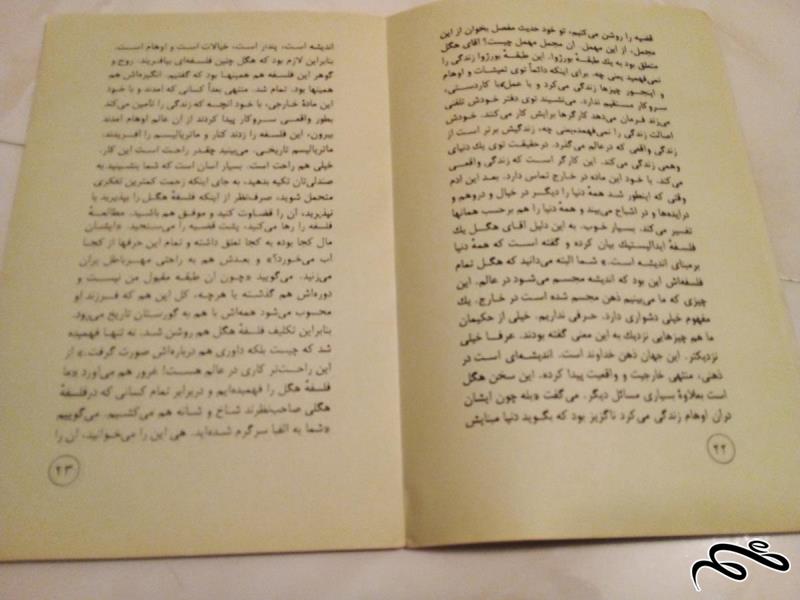 قضیه را روشن می‌کنیم، تو خود حدیث مفصل بخوان از این
مجمل، از این مهمل. آن مجمل مهمل چیست؟ آقای هگل
متعلق بود به یك طبقهٔ بورژوا. این طبقهٔ بورژوا زندگی را
نمی‌فهمید یعنی چه. برای اینکه دائماً توی تعیشات و اوهام
و اینجور چیزها زندگی می‌کرد و با عمل، با کاردستی،
سروکار مستقیم ندارد. می‌نشیند توی دفتر خودش تلفنی
می‌زند فرمان می‌دهد کارگرها برایش کار می‌کنند. خودش
اصالت زندگی را نمی‌فهمد یعنی چه، زندگیش برتر است از
زندگی واقعی که در عالم می‌گذرد. در حقیقت توی یك دنیای
وهمی زندگی می‌کند. این کارگر است که زندگی واقعی
می‌کند. با خود این ماده در خارج تماس دارد. بعد این آدم
وقتی که اینطور شد همهٔ دنیا را دیگر در خیال و دروهم و
در ایده‌ها و در اشباح می‌بیند و همهٔ دنیا را هم برحسب همانها
تفسیر می‌کند. بسیار خوب. به این دلیل آقای هگل یك
فلسفهٔ ایدالیستیك بیان کرده و گفته است که همهٔ دنیا
برمبنای اندیشه است.» شما البته می‌دانید که هگل تمام
فلسفه‌اش این بود که اندیشه مجسم می‌شود در عالم. این
چیزی که ما می‌بینیم ذهن مجسم شده است در خارج. یك
مفهوم خیلی دشواری دارد. حرفی نداریم. خیلی از حکیمان
ما هم چیزهایی نزدیك به این معنی گفته بودند. عرفا خیلی
نزدیکتر. این جهان ذهن خداوند است. اندیشه‌ای است در
ذهنی، منتهی خارجیت و واقعیت پیدا کرده. این سخن هگل
است بعلاوهٔ بسیاری مسائل دیگر. می‌گفت «بله چون ایشان
درآن اوهام زندگی می‌کرد ناگزیز بود که بگوید دنیا مبنایش
۲۲
اندیشه است، پندار است، خیالات است و اوهام است.
بنابراین لازم بود که هگل چنین فلسفه‌ای بیافریند. روح و
گوهر این فلسفه هم همینها بود که گفتیم. انگیزه‌اش هم
همینها بود. تمام شد. منتهی بعداً کسانی که آمدند و با خود
این مادهٔ خارجی، با خود آنچه که زندگی را تامین می‌کند
بطور واقعی سروکار پیدا کردند از آن عالم اوهام آمدند
بیرون، این فلسفه را زدند کنار و ماتریالیسم را آفریدند.
ماتریالیسم تاریخی. می‌بینید چقدر راحت است این کار.
خیلی هم راحت است. بسیار آسان است که شما بنشینید به
صندلی‌تان تکیه بدهید، به جای اینکه زحمت کمترین تفکری
متحمل شوید، صرف‌نظر از اینکه فلسفهٔ هگل را بپذیرید یا
نپذیرید، آن را قضاوت کنید و موفق هم باشید. مطالعهٔ
فلسفه را رها می‌کنید، پشت قضیه را می‌سنجید. «ایشان
مال کجا بوده به کجا تعلق داشته و تمام این حرفها از کجا
آب می‌خورد؟» و بعدش هم به راحتی مهرباطل برآن
می‌زنید. می‌گویید «چون آن طبقه مقبول من نیست و
دوره‌اش هم گذشته یا هرچه، کل این هم که فرزند او
محسوب می‌شود همه‌اش با هم به گورستان تاریخ می‌رود.
بنابراین تکلیف فلسفهٔ هگل هم روشن شد. نه تنها فهمیده
شد که چیست بلکه داوری هم درباره‌اش صورت گرفت.» از
این راحت‌تر کاری در عالم هست! غرور هم می‌آورد «ما
فلسفهٔ هگل را فهمیده‌ایم و دربرابر تمام کسانی که درفلسفهٔ
هگلی صاحب‌نظرند شاخ و شانه هم می‌کشیم. می‌گوییم
«شما به الفبا سرگرم شده‌اید. هی این را می‌خوانید، آن را
۲۳